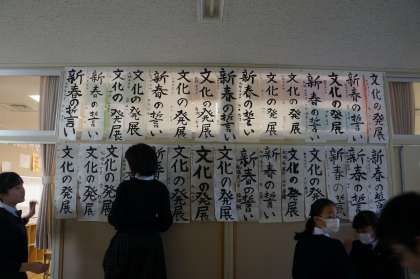 新春の誓い
新春の誓い
文化の発展
文化の発展
新春の誓い
文化の発展
文化の発展
新春の誓い
新春の誓い
文化の発展
文化の発展
新春の誓い
文化の発展
新春の誓い
文化の発展
文化の発展
文化の発展
文化の発展
文化の発展
文化の発展
文化の発展
新春の誓い
新春の誓い
文化の発展
文化の発展
新春の誓い
新春の誓い
新春の誓い